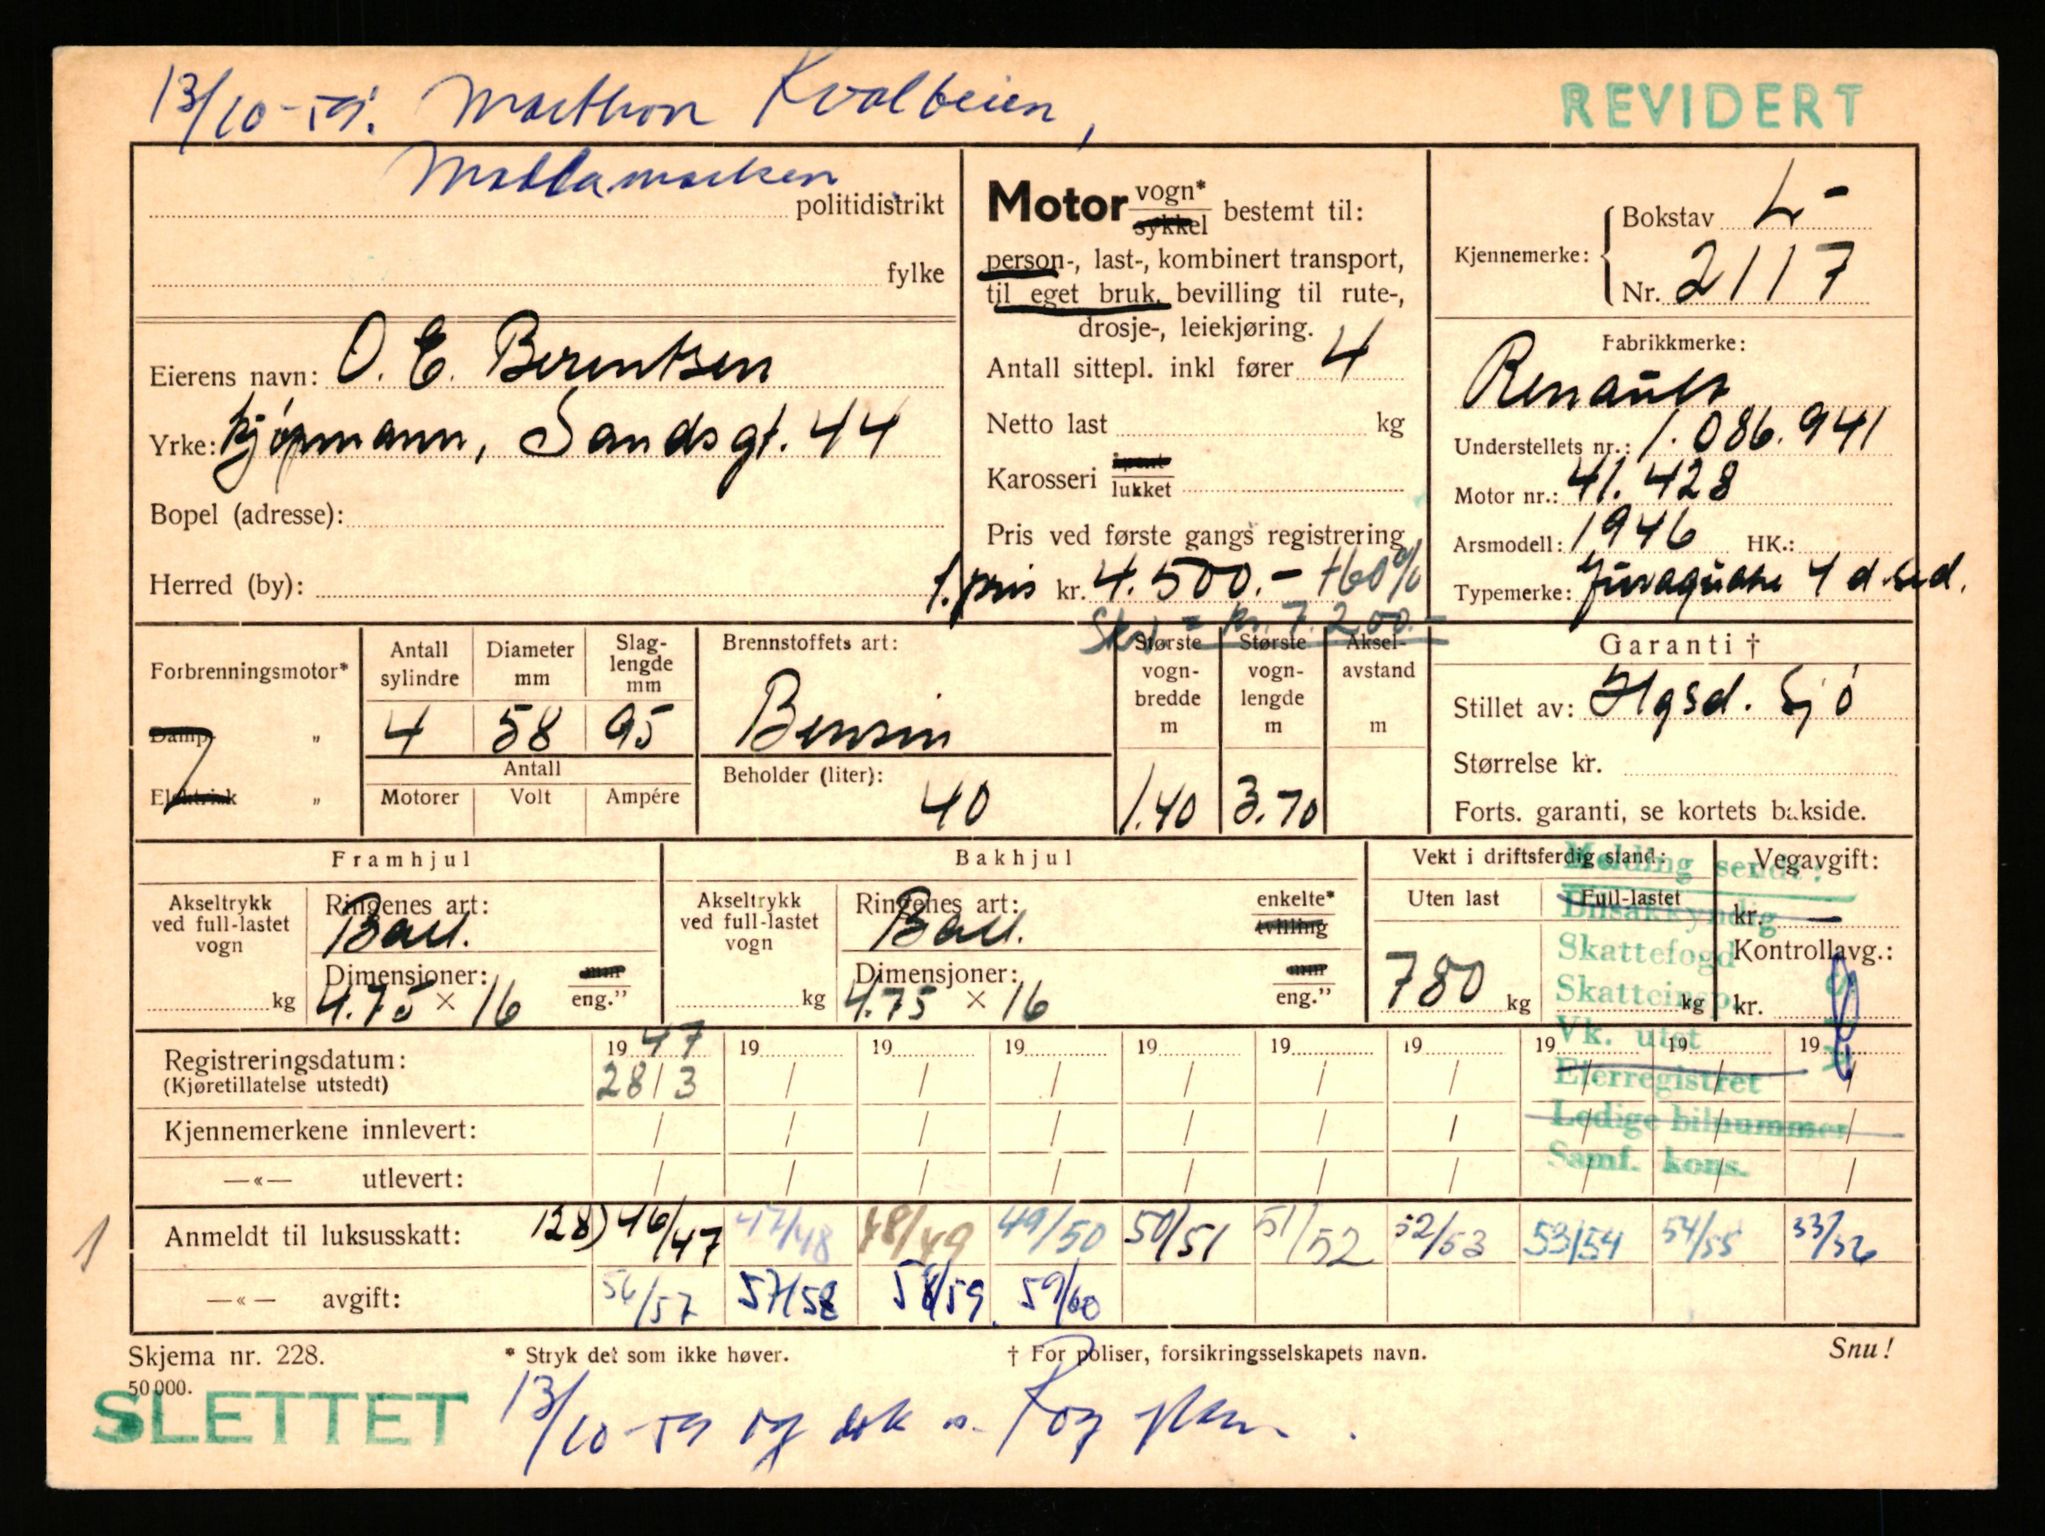 13/10-59. Kvalbeien,
REVIDERT
Mattamarken
politidistrikt
fylke
Eierens navn: O. E. Berentsen
Yrke: kjøpmann, Sandsgt. 44
Bopel (adresse):
Herred (by):
Motor vogn* / sykkel bestemt til:
person-, last-, kombinert transport,
til eget bruk, bevilling til rute-,
drosje-, leiekjøring.
Antall sittepl. inkl fører 4
Netto last kg
Karosseri åpent / lukket
Pris ved første gangs registrering
1. pris kr. 4.500.- +60%
= kr. 7.200.-
Kjennemerke: Bokstav L-
Nr. 2117
Fabrikkmerke:
Renault
Understellets nr.: 1.086.941
Motor nr.: 41.428
Arsmodell: 1946 HK.:
Typemerke: Juvaquatre 4 d. sed.
Forbrenningsmotor*
Damp- „
Elektrisk „
Antall sylindre
4
Diameter mm
58
Slag-lengde mm
95
Antall
Motorer Volt Ampére
Brennstoffets art:
Bensin
Beholder (liter):
40
Største vogn-bredde m
1.40
Største vogn-lengde m
3.70
Aksel-avstand m
Garanti †
Stillet av: Hgsd. Sjó
Størrelse kr.
Forts. garanti, se kortets bakside.
Framhjul
Akseltrykk ved full-lastet vogn
kg
Ringenes art:
Ball.
Dimensjoner: mm
4.75 × 16 eng.”
Bakhjul
Akseltrykk ved full-lastet vogn
kg
Ringenes art: enkelte*
Ball. tvilling
Dimensjoner: mm
4.75 × 16 eng.”
Vekt i driftsferdig stand:
Uten last
780 kg
Full-lastet
kg
Vegavgift:
kr. —
Kontrollavg.:
kr.
Melding sendt:
Bilsakkyndig
Skattefogd
Skatteinsp.
Vk. utst
Eierregistret
Ledige bilnummer
Samf. kons.
Registreringsdatum: 1947 19 19 19 19 19 19 19 19 19
(Kjøretillatelse utstedt) 28/3 / / / / / / / / /
Kjennemerkene innlevert: / / / / / / / / / /
—«— utlevert: / / / / / / / / / /
1
Anmeldt til luksusskatt: 128) 46/47 47/48 48/49 49/50 50/51 51/52 52/53 53/54 54/55 55/56
—«— avgift: 56/57 57/58 58/59 59/60
Skjema nr. 228. * Stryk det som ikke høver. † For poliser, forsikringsselskapets navn. Snu!
50 000.
SLETTET
13/10-59